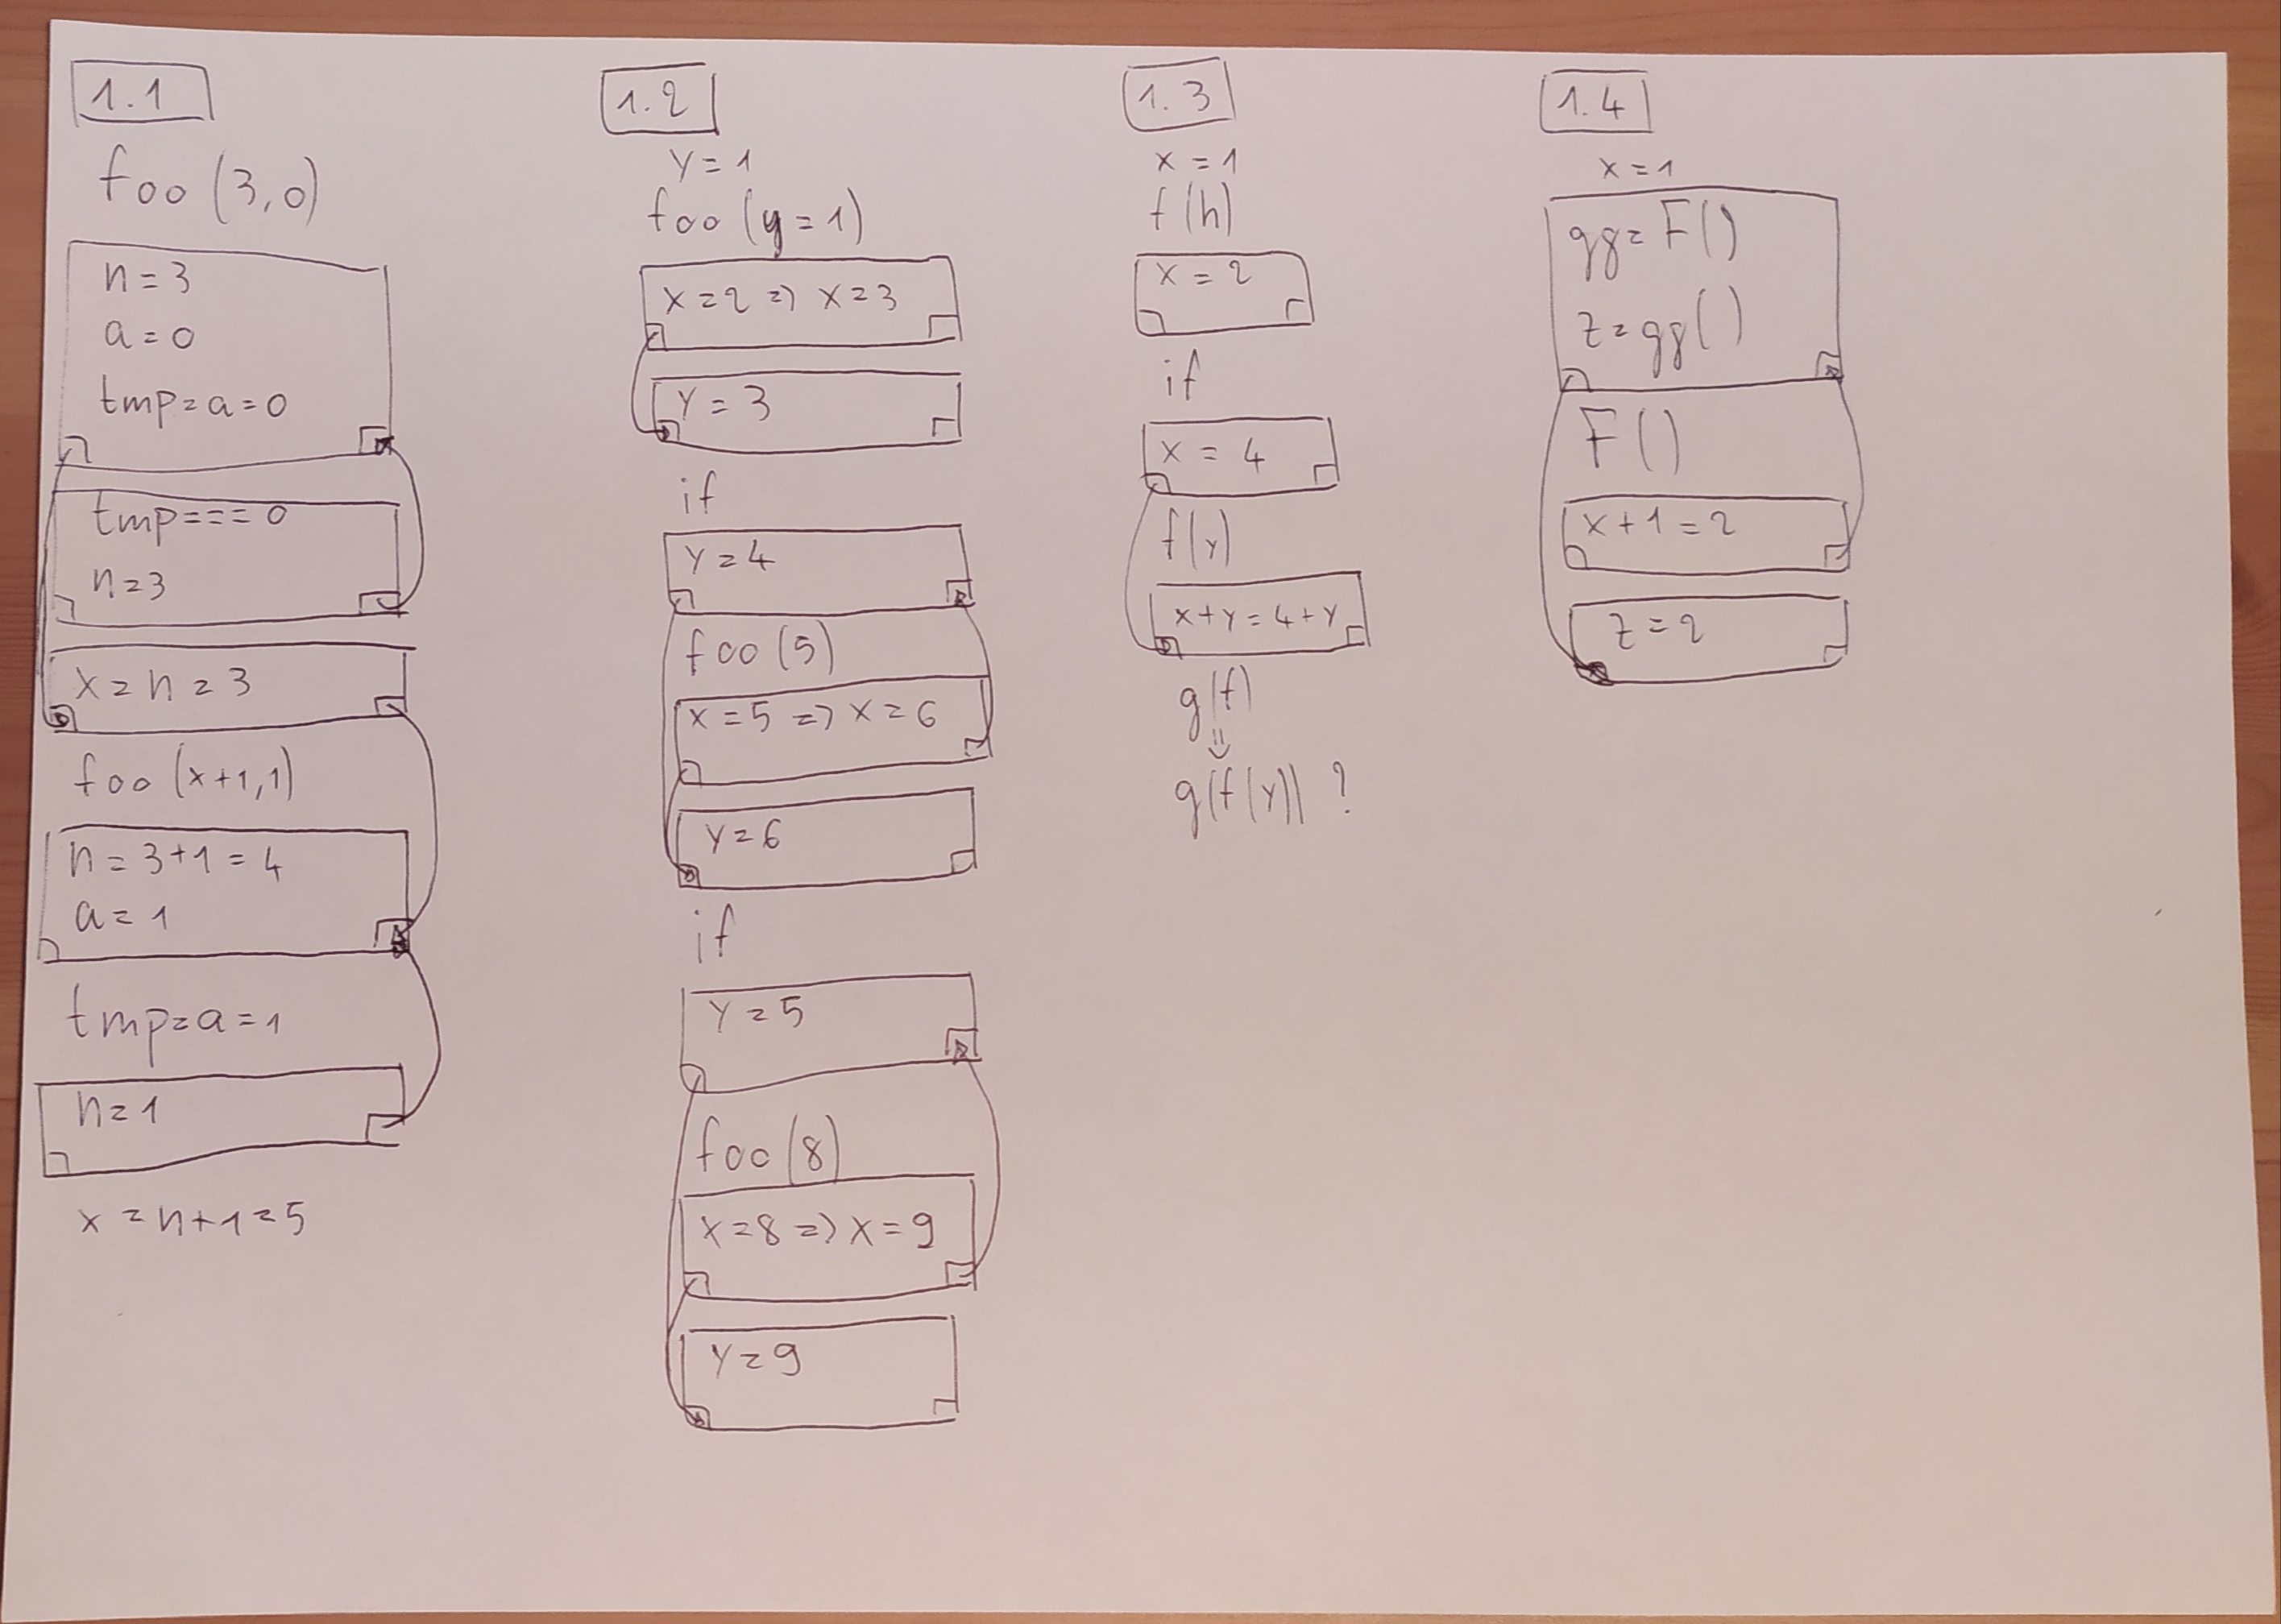 1.1
foo (3,0)
n = 3
a = 0
tmp = a = 0
tmp === 0
n = 3
x = n = 3
foo (x+1,1)
n = 3+1 = 4
a = 1
tmp = a = 1
n = 1
x = n+1 = 5
1.2
y = 1
foo (y = 1)
x = 2 => x = 3
y = 3
if
y = 4
foo (5)
x = 5 => x = 6
y = 6
if
y = 5
foo (8)
x = 8 => x = 9
y = 9
1.3
x = 1
f(h)
x = 2
if
x = 4
f(y)
x+y = 4+y
g(f)
⇓
g(f(y)) ?
1.4
x = 1
gg = F()
z = gg()
F()
x+1 = 2
z = 2